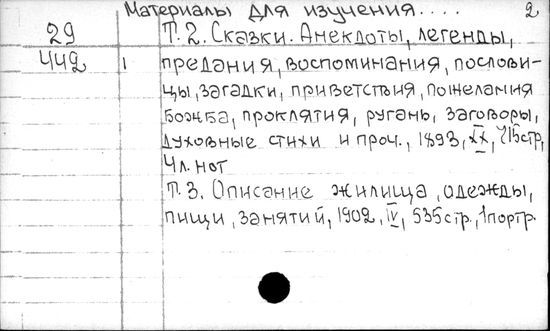 Материалы для изучения.... 2
29 Т.2. Сказки. Анекдоты, легенды,
442 1 предания, воспоминания, послови-
цы, загадки, приветствия, пожелания
божба, проклятия, ругань, заговоры,
духовные стихи и проч., 1893, XX, 715 стр,
4 л. нот
Т.3. Описание жилища, одежды,
пищи, занятий, 1902, IV, 535 стр., 1 портр.